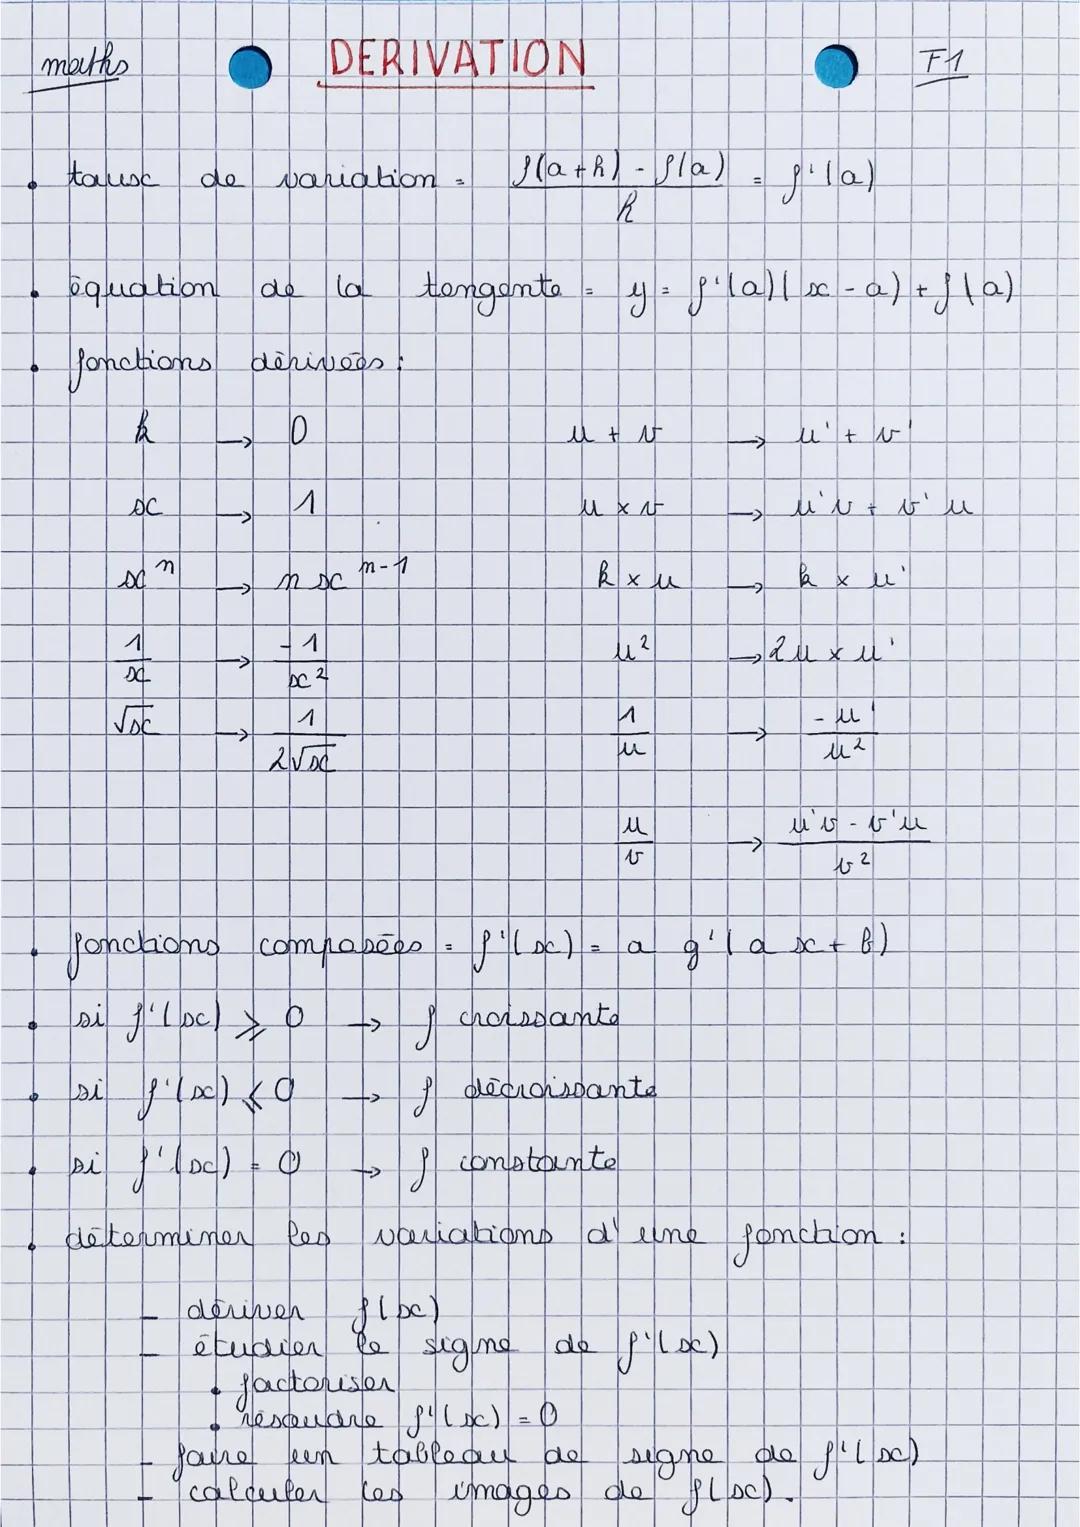 maths DERIVATION F1
• taux de variation = \frac{f(a+h) - f(a)}{h} = f'(a)
• équation de la tangente = y = f'(a)(x-a)+f(a)
• fonctions dérivées :
k → 0 u + v → u' + v'
x → 1 u × v → u'v + v'u
x^n → nx^{n-1} k × u → k × u'
\frac{1}{x} → \frac{-1}{x^2} u^2 → 2u × u'
\sqrt{x} → \frac{1}{2\sqrt{x}} \frac{1}{u} → \frac{-u'}{u^2}
\frac{u}{v} → \frac{u'v - v'u}{v^2}
• fonctions composées = f'(x) = a g'(ax + b)
• si f'(x) ⩾ 0 → f croissante
• si f'(x) ⩽ 0 → f décroissante
• si f'(x) = 0 → f constante
• déterminer les variations d'une fonction :
- dériver f(x)
- étudier le signe de f'(x)
• factoriser
• résoudre f'(x) = 0
- faire un tableau de signe de f'(x)
- calculer les images de f(x).